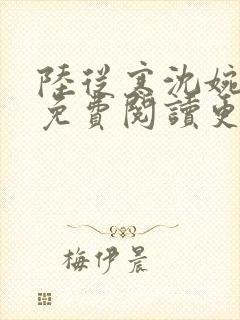 陸從寒沈婉
免費閱讀更
梅伊晨